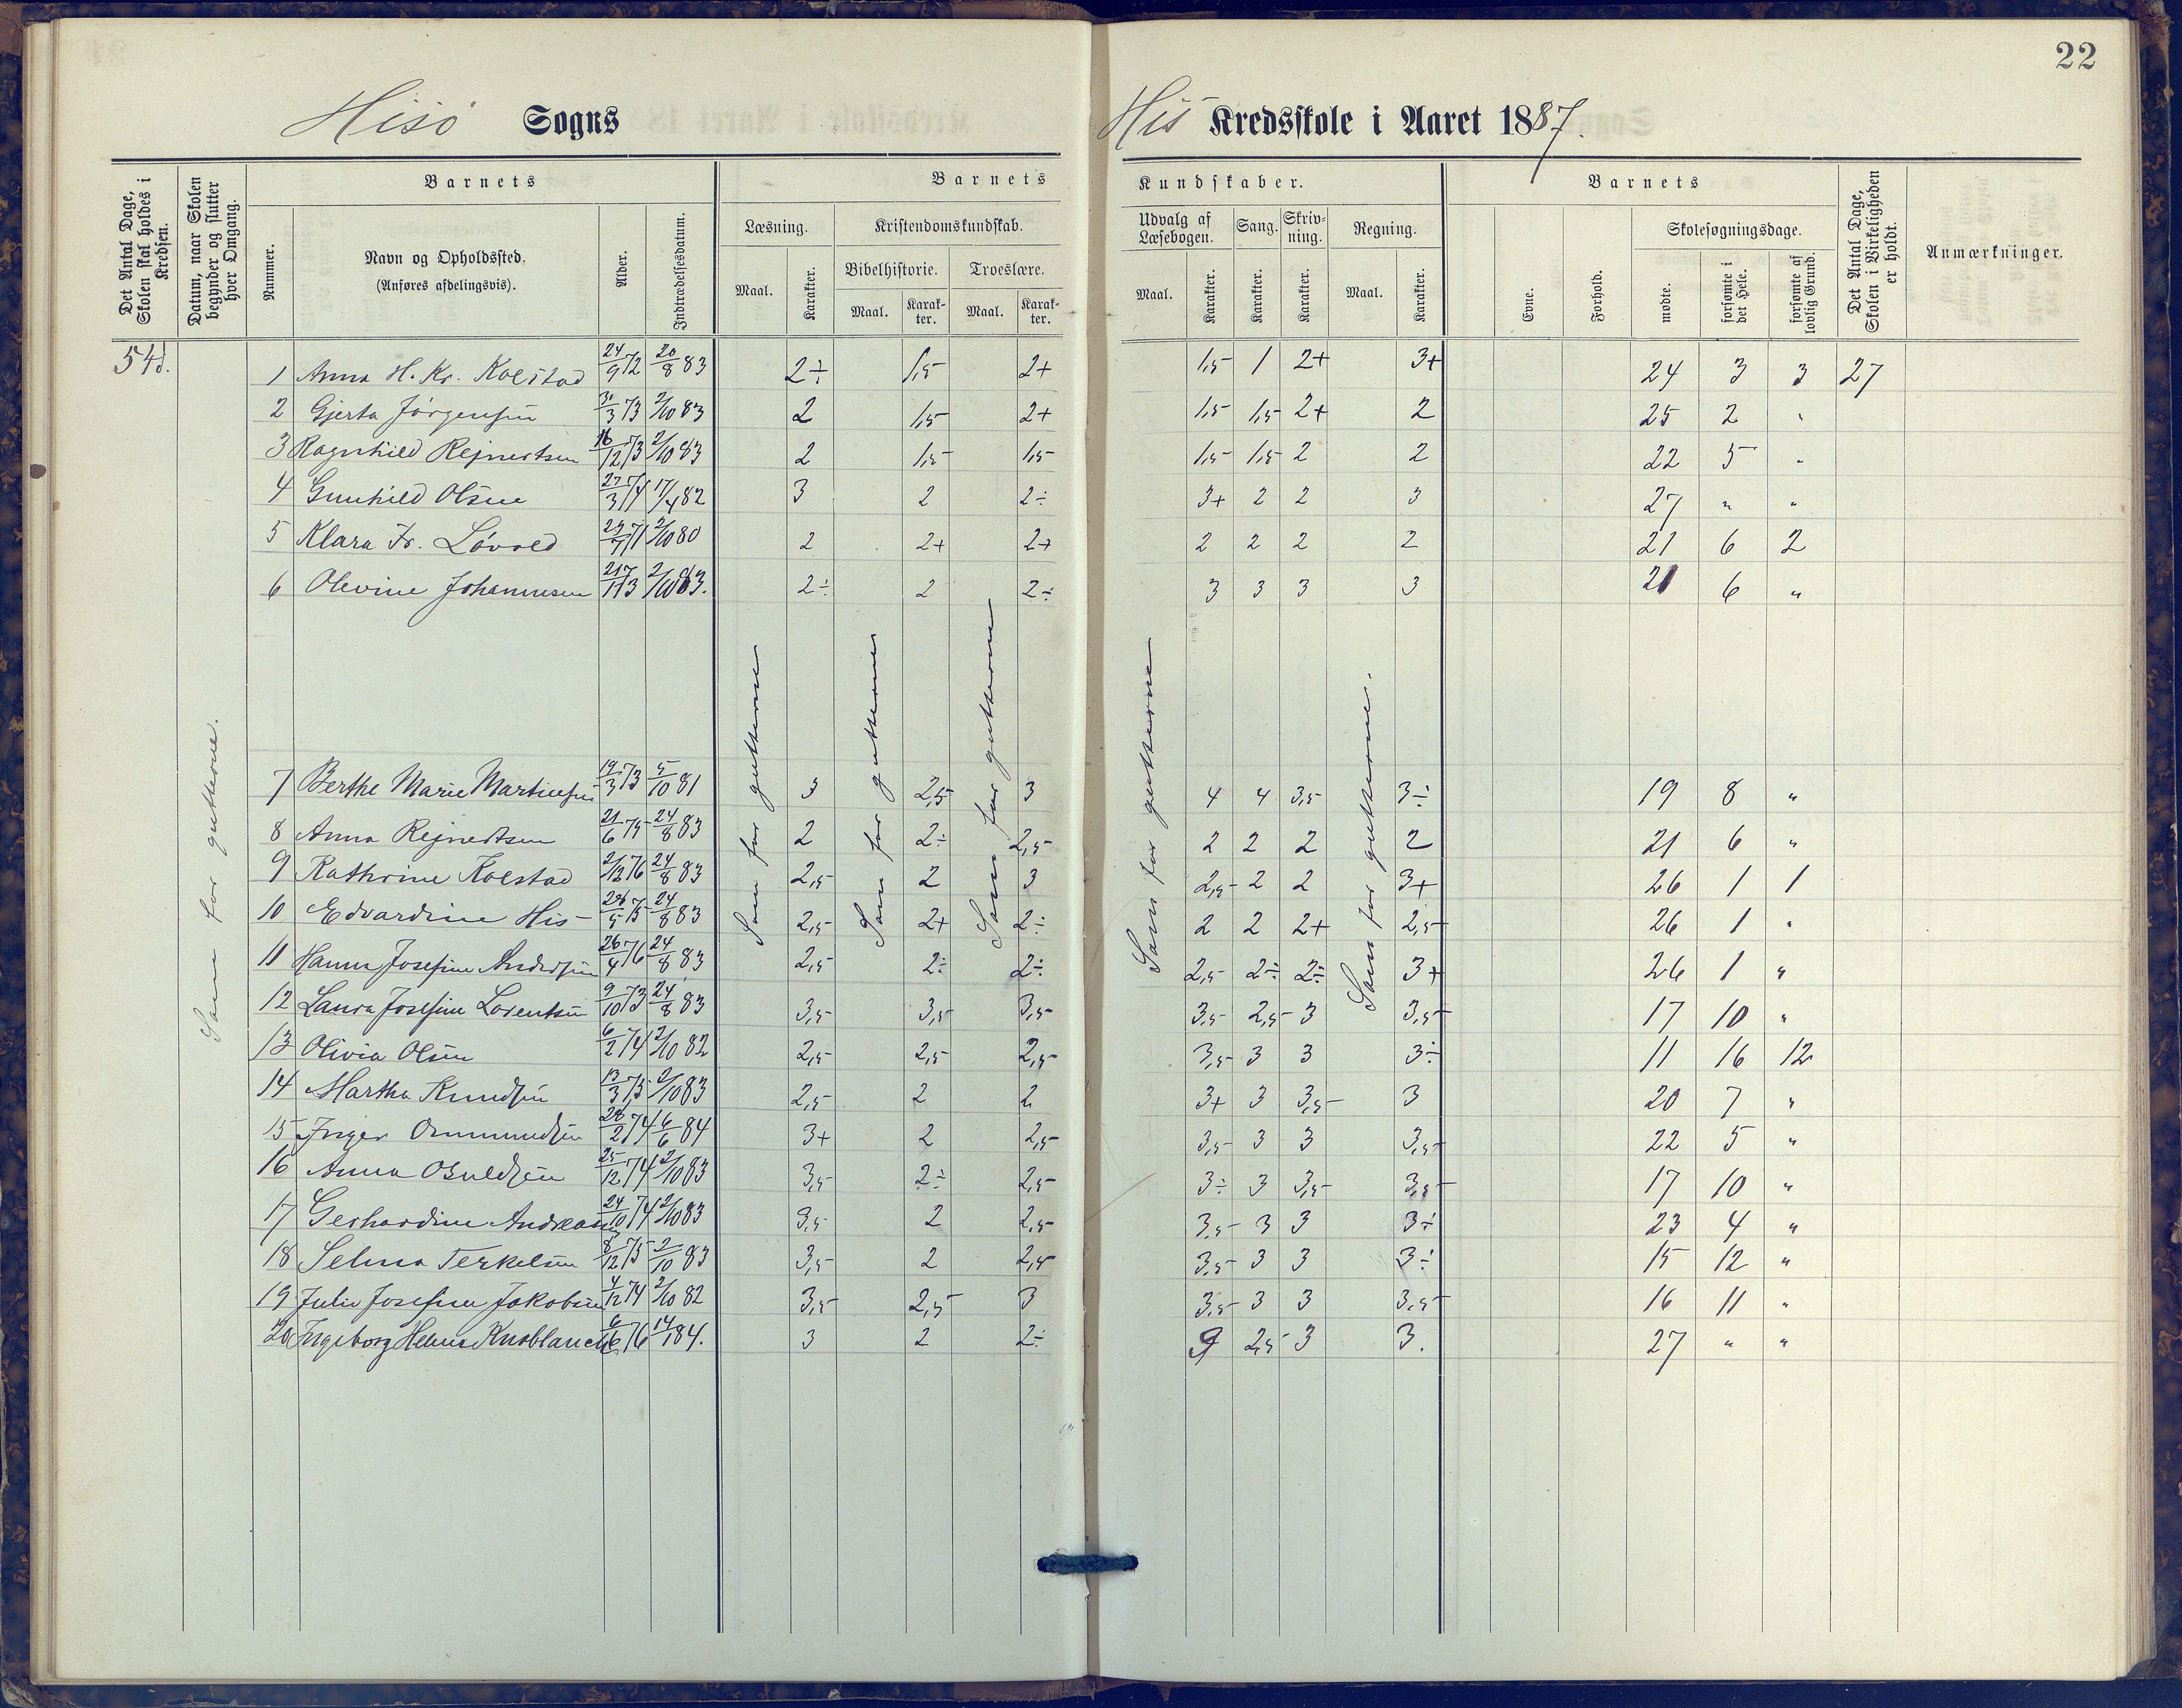 22
Hisø Sogns His Kredsskole i Aaret 1887.
Det Antal Dage, Skolen skal holdes i Kredsen.
Datum, naar Skolen begynder og slutter hver Omgang.
Barnets
Nummer.
Navn og Opholdssted.
(Anføres afdelingsvis).
Alder.
Indtrædelsesdatum.
Barnets Kundskaber.
Læsning.
Maal. Karakter.
Kristendomskundskab.
Bibelhistorie. Troeslære.
Maal. Karakter. Maal. Karakter.
Udvalg af Læsebogen.
Maal. Karakter.
Sang.
Karakter.
Skrivning.
Karakter.
Regning.
Maal. Karakter.
Barnets
Evne. Forhold.
Skolesøgningsdage.
mødte. forsømte i det Hele. forsømte af lovlig Grund.
Det Antal Dage, Skolen i Virkeligheden er holdt.
Anmærkninger.
54d. 1 Anna H. Kr. Kolstad 24/9 72 20/8 83 2÷ 1,5 2+ 1,5 1 2+ 3+ 24 3 3 27
2 Gjerta Jørgensen 31/3 73 2/10 83 2 1,5 2+ 1,5 1,5 2+ 2 25 2 "
3 Ragnhild Rejnertsen 16/12 73 2/10 83 2 1,5 1,5 1,5 1,5 2 2 22 5 "
4 Gunhild Olsen 27/3 71 17/4 82 3 2 2÷ 3+ 2 2 3 27 " "
5 Klara Fr. Løvold 71 2/10 80 2 2+ 2+ 2 2 2 2 21 6 2
6 Olevine Johannesen 21/11 73 2/10 83. 2÷ 2 2÷ 3 3 3 3 21 6 "
7 Berthe Marie Martinsen 19/3 73 5/10 81 3 2,5 3 4 4 3,5 3÷ 19 8 "
8 Anna Rejnertsen 21/6 75 24/8 83 2 2÷ 2,5 2 2 2 2 21 6 "
9 Kathrine Kolstad 2/12 76 24/8 83 2,5 2 3 2,5 2 2 3+ 26 1 1
10 Edvardine His 75 24/8 83 2,5 2+ 2÷ 2 2 2+ 2,5 26 1 "
11 Hanna Josefine Andersen 26/4 76 24/8 83 2,5 2÷ 2÷ 2,5 2÷ 2÷ 3+ 26 1 "
12 Laura Josefine Lorentsen 9/10 73 24/8 83 3,5 3,5 3,5 3,5 2,5 3 3,5 17 10 "
13 Olivia Olsen 6/2 74 2/10 82 2,5 2,5 2,5 3,5 3 3 3÷ 11 16 12
14 Martha Knudsen 13/3 75 2/10 83 2,5 2 2 3+ 3 3,5 3 20 7 "
15 Inger Ommundsen 28/2 74 6/6 84 3+ 2 2,5 3,5 3 3 3,5 22 5 "
16 Anna Osuldsen 25/12 74 2/10 83 3,5 2÷ 2,5 3÷ 3 3,5 3,5 17 10 "
17 Gerhardine Andreasen 24/10 74 2/10 83 3,5 2 2,5 3,5 3 3 3÷ 23 4 "
18 Selma Terkelsen 8/12 75 2/10 83 3,5 2 2,5 3,5 3 3 3÷ 15 12 "
19 Julie Josefine Jakobsen 4/12 74 2/10 82 3,5 2,5 3 3,5 3 3 3,5 16 11 "
20 Ingeborg Helene Knoblauch 6/6 76 14/1 84. 3 2 2÷ 2,5 3 3. 27 " "
Som for gutterne.
Som for gutterne
Som for gutterne
Som for gutterne
Som for gutterne
Som for gutterne.